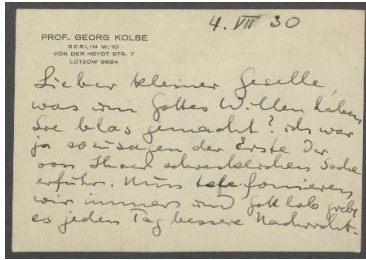 4. VII 30
PROF. GEORG KOLBE
BERLIN W. 10
VON DER HEYDT STR. 7
LÜTZOW 9824
Lieber kleiner Geselle,
was um Gottes Willen haben
Sie blos gemacht? ich war
ja sozusagen der Erste der
von Ihrer schrecklichen Sache
erfuhr. Nun telefonieren
wir immer und gottlob
es jeden Tag bessere Nachricht.